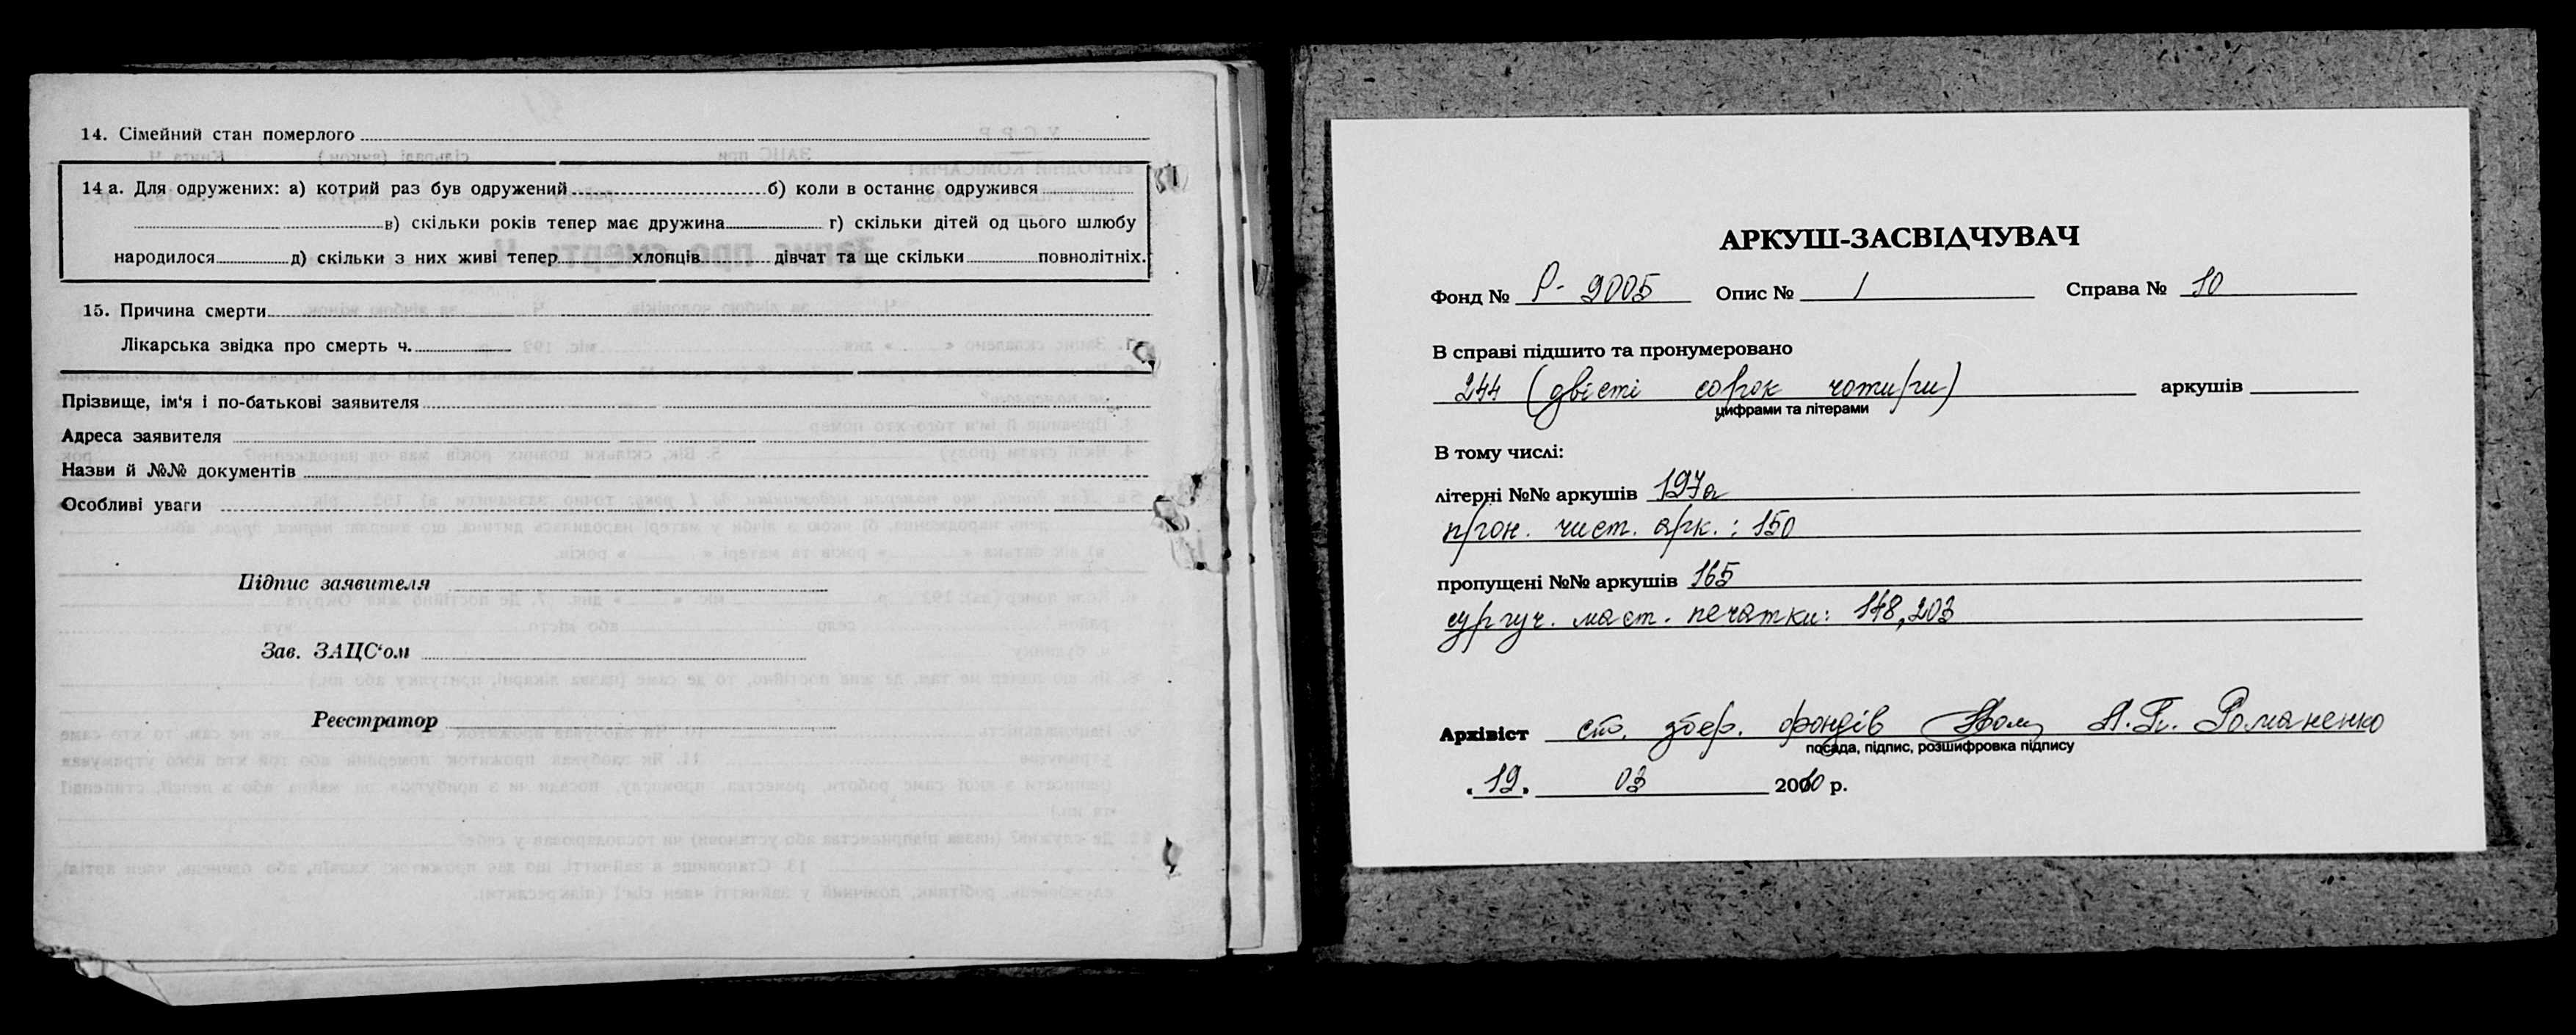 14. Сімейний стан померлого
14 а. Для одружених: а) котрий раз був одружений б) коли в останнє одружився
в) скільки років тепер має дружина г) скільки дітей од цього шлюбу
народилося д) скільки з них живі тепер хлопців дівчат та ще скільки повнолітніх.
15. Причина смерти
Лікарська звідка про смерть ч.
Прізвище, ім'я і по-батькові заявителя
Адреса заявителя
Назви й №№ документів
Особливі уваги
Підпис заявителя
Зав. ЗАЦС'ом
Реєстратор
АРКУШ-ЗАСВІДЧУВАЧ
Фонд № Р- 9005 Опис № 1 Справа № 10
В справі підшито та пронумеровано
244 (двісті сорок чотири) аркушів
цифрами та літерами
В тому числі:
літерні №№ аркушів 197а
прон. чист. арк. : 150
пропущені №№ аркушів 165
сургуч. маст. печатки: 148, 203
Архівіст ст. збер. фондів Романенко
посада, підпис, розшифровка підпису
"19" 03 2010 р.